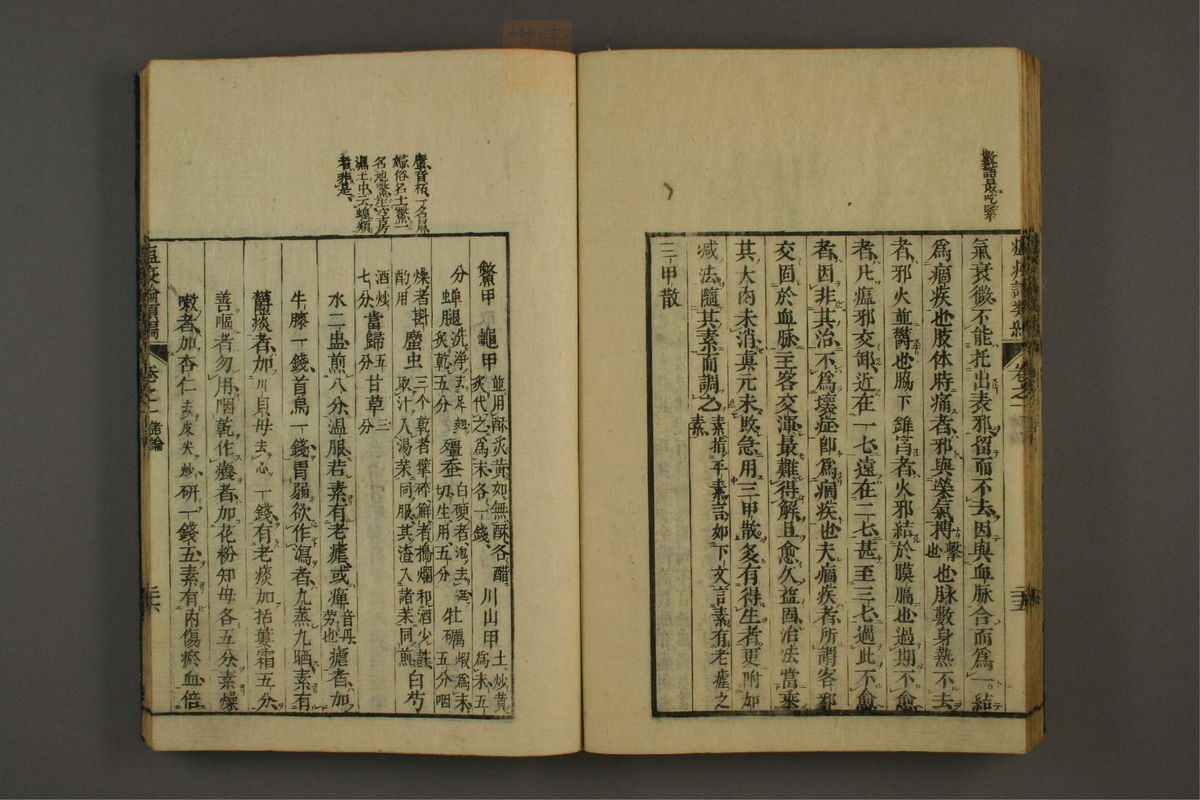 數語最吃緊
氣衰微不能托出表邪留而不去因與血脉合而為一結
為痼疾也肢体時痛者邪與榮氣搏擊也也脉數身熱不去
者邪火並欝也脇下錐宵者火邪結於膜膈也過期不愈
者凡瘟邪交卸近在一七遠在二七甚至三七過此不愈
者因非其治不為壞症即為痼疾也夫痼疾者所謂客邪
交固於血脉主客交渾最難得解且愈久益固治法當乘
其大肉未消真元未敗急用三甲散多有得生者更附加
减法隨其素而調之素素指平素言如下文言素有老瘧之
三甲散
䗪音柘一名𧉅
婦俗名土鱉一
名地鱉生空房
濕土中云蟑類
者非是
鱉甲 龜甲並用酥炙黃如無酥各醋炙代之為末各一錢 川山甲土炒黃為末五
分 蟬腿洗淨去足翅炙乾五分 殭蚕白硬者泡去涎切生用五分 牡礪煆為末五分咽
燥者斟酌用 䗪虫三个乾者擘碎鮮者搗爛和酒少許取汁入湯茱同服其渣入諸茱同煎 白芍
酒炒七分 當歸五分 甘草三分
水二盅煎八分温服若素有老瘧或癉音丹勞也瘧者加
牛膝一錢首烏一錢胃弱欲作瀉者九蒸九晒素有
欝痰者加川貝母去心一錢有老痰加括蔞霜五分
善嘔者勿用咽乾作癢者加花粉知母各五分素燥
嗽者加杏仁去皮尖炒研一錢五素有內傷瘀血倍
瘟疫論類編 卷之二 諸論 三十六